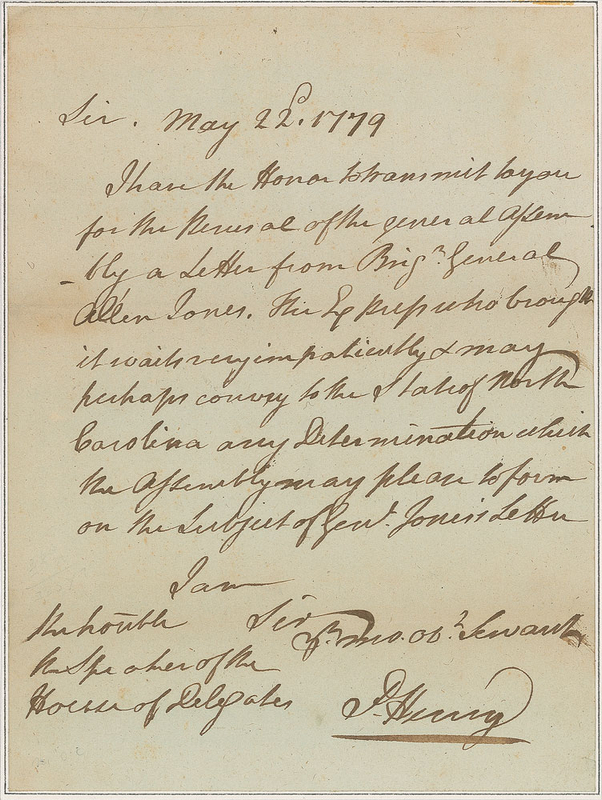 Sir. May 22d. 1779
I have the Honor to transmit to you
for the Perusal of the general Assem
-bly a Letter from Brigr General
Allen Jones. The Express who brought
it waits very impatiently & may
perhaps convey to the State of North
Carolina any Determination which
the Assembly may please to form
on the Subject of Genl. Jones's Letter
I am
Sir
yr. mo. obt. Servant
P. Henry
The honble
the Speaker of the
House of Delegates